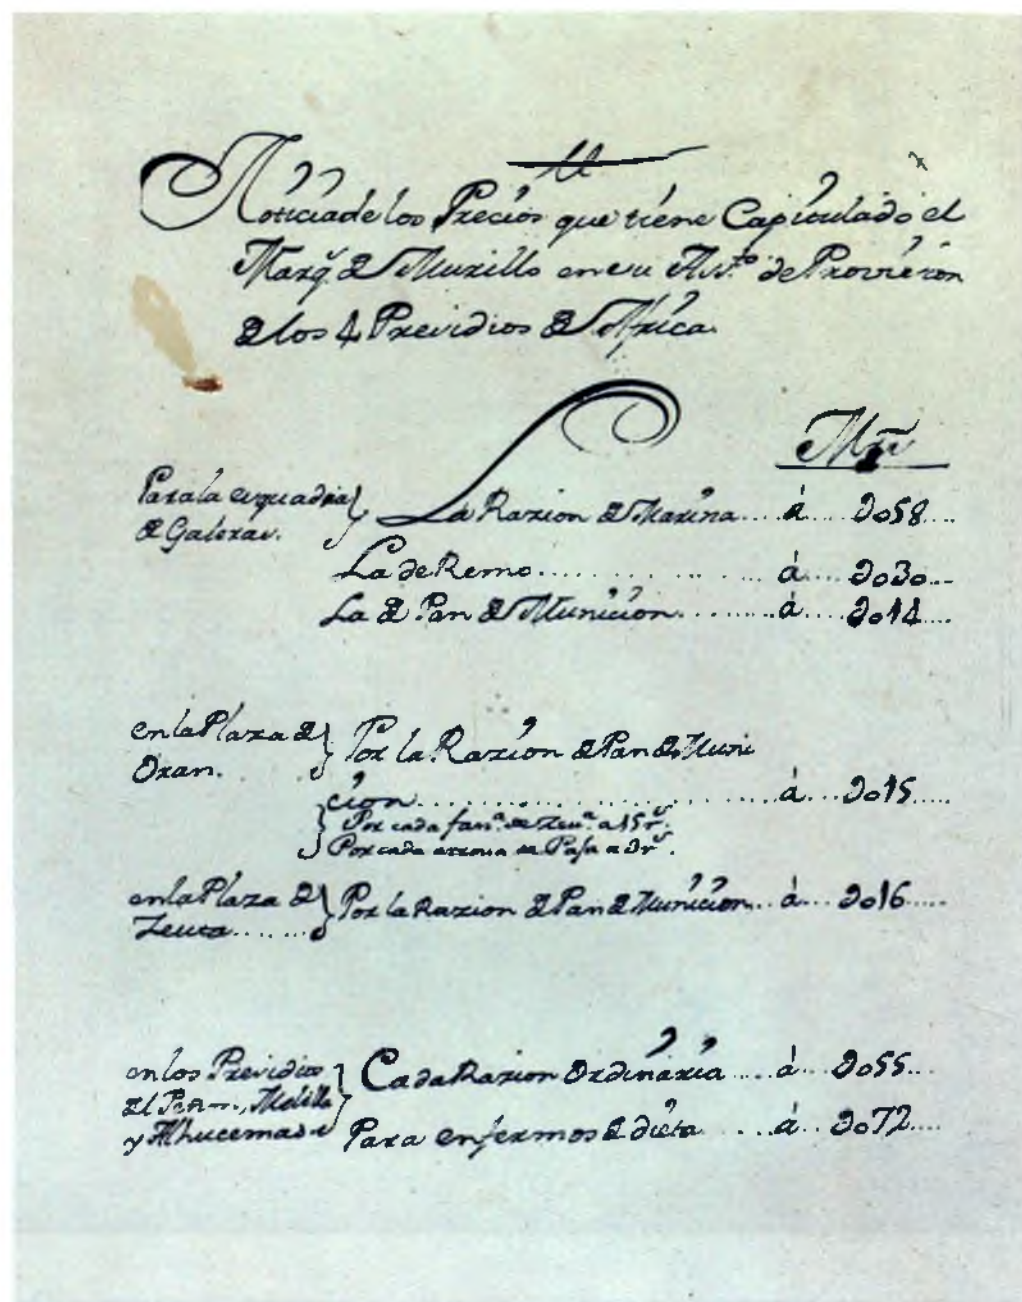 Noticia de los Precios que tiene Capitulado el
Marq.ˢ de Murillo en su As.ᵗᵒ de Provicion
de los 4 Presidios de Africa.
Mrs
Para la esquadra de Galeras. } La Razion de Marina.... á.... 0058....
La de Remo............ á.... 0030...
La de Pan de Municion.......... á.... 0014....
en la Plaza de Oran. } Por la Razion de Pan de Muni
cion........................ á... 0015.....
Por cada fan.ᵃ de Zeu.ᵃ a 15 r.ˢ
Por cada arrova de Paja a 3 r.ˢ
en la Plaza de Zeuta....... } Por la Razion de Pan de Municion... á... 0016.....
en los Presidios del Peñon, Melilla y Alhucemas } Cada Razion Ordinaria.... á... 0055....
Para enfermos de dieta..... á... 0072....